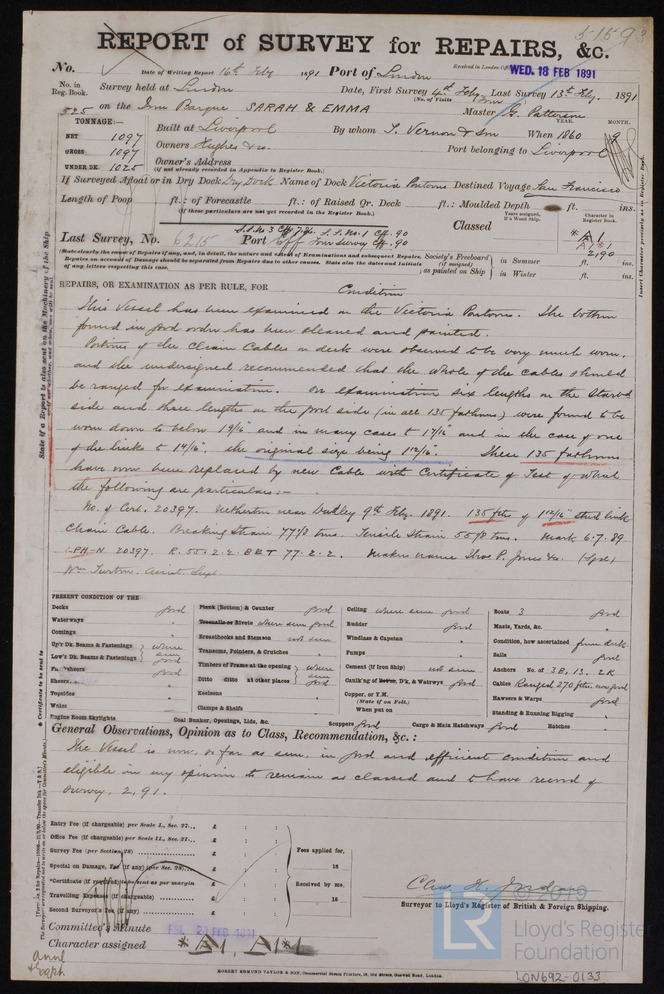 51593
REPORT of SURVEY for REPAIRS, &c.
No. Date of Writing Report 16th Feby 1891 Port of London Received in London Office WED. 18 FEB 1891
No. in Reg. Book. Survey held at London Date, First Survey 4th Feby Last Survey 13th Feby. 1891
(No. of Visits four)
525 on the Iron Barque SARAH & EMMA Master G. Patterson
TONNAGE:— YEAR. MONTH.
NET 1097 Built at Liverpool By whom T. Vernon & Son When 1860 9
GROSS 1097 Owners Hughes & Co. Port belonging to Liverpool
UNDER DK. 1025 Owner's Address
(if not already recorded in Appendix to Register Book.)
If Surveyed Afloat or in Dry Dock Dry Dock Name of Dock Victoria Pontoons Destined Voyage San Francisco
Length of Poop ft.: of Forecastle ft.: of Raised Qr. Dock ft.: Moulded Depth ft. ins.
(if these particulars are not yet recorded in the Register Book.)
Years assigned, if a Wood Ship. Character in Register Book.
Classed
S.S. No 3 S.S. No. 1 90
Last Survey, No. 6215 Port 90
* A1
A1*1
2,90
(State clearly the cause of Repairs if any, and, in detail, the nature and extent of Examinations and subsequent Repairs.
Repairs on account of Damage should be separated from Repairs due to other causes. State also the dates and Initials
of any letters respecting this case.
Society's Freeboard (if assigned) as painted on Ship in Summer ft. ins.
in Winter ft. ins.
REPAIRS, OR EXAMINATION AS PER RULE, FOR Condition
This Vessel has been examined on the Victoria Pontoons. The bottom
found in good order has been cleaned and painted.
Portions of the Chain Cables on deck were observed to be very much worn,
and the undersigned recommended that the whole of the cables should
be ranged for examination. On examination six lengths on the Starbd
side and three lengths on the port side (in all 135 fathoms) were found to be
worn down to below 1 9/16" and in many cases to 1 7/16" and in the case of one
of the links to 1 4/16", the original size being 1 12/16". These 135 fathoms
have now been replaced by new Cable with Certificate of Test of which
the following are particulars:—
No. of Cert. 20397. Netherton near Dudley 9th Feby. 1891. 135 fms of 1 12/16" stud link
Chain Cable. Breaking Strain 77 1/8 tons. Tensile Strain 55 1/8 tons. Mark 6.7.89
L.P.H-N 20397. R. 55.2.2 B&T 77.2.2. Makers name Thos P. Jones & Co. (Sgd)
Wm Turton. Assist. Supt.
PRESENT CONDITION OF THE
Decks good
Waterways "
Comings "
Up'r Dk. Beams & Fastenings where seen
Low'r Dk. Beams & Fastenings good
Plansheers good
Sheers
Topsides "
Wales "
Engine Room Skylights
Plank (Bottom) & Counter good
Treenails or Rivets where seen good
Breasthooks and Stemson not seen
Transoms, Pointers, & Crutches "
Timbers of Frame at the opening where seen
Ditto ditto at other places good
Keelsons "
Clamps & Shelfs "
Coal Bunker, Openings, Lids, &c.
Ceiling where seen good
Rudder good
Windlass & Capstan "
Pumps "
Cement (if Iron Ship) not seen
Caulk'ng of Bottom, D'k, & Watrways good
Copper, or Y.M. (State if on Felt.)
When put on
Scuppers good Cargo & Main Hatchways good
Boats 3 good
Masts, Yards, &c. "
Condition, how ascertained from deck
Sails good
Anchors No. of 3 B, 1 S, 2 K
Cables Ranged 270 fms. now good
Hawsers & Warps good
Standing & Running Rigging "
Hatches "
General Observations, Opinion as to Class, Recommendation, &c.:
The Vessel is now, so far as seen, in good and efficient condition and
eligible in my opinion to remain as classed and to have record of
survey, 2,91.
Entry Fee (if chargeable) per Scale I., Sec. 27... £ : :
Office Fee (if chargeable) per Scale II., Sec. 27... £ : :
Survey Fee (per Section 28) £ : :
Special on Damage, Fee (if any) (per Sec. 28) £ : :
*Certificate (if required) to be sent as per margin £ : :
Travelling Expenses (if chargeable) £ : :
Second Surveyor's Fee, (if any) £ : :
Fees applied for,
18
Received by me,
18
Surveyor to Lloyd's Register of British & Foreign Shipping.
Committee's Minute FRI. 20 FEB 1891
Character assigned * A1, A1*1
ROBERT EDMUND TAYLOR & SON, Commercial Steam Printers, 19, Old Street, Goswell Road, London.
LON692-0133
State if a Report is also sent on the Machinery of the Ship
Insert Character precisely as in Register Book.
© 2019
LR
Lloyd's Register
Foundation